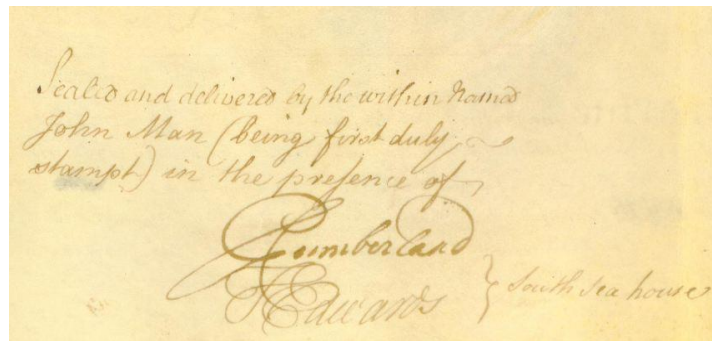 Sealed and delivered by the within Named
John Man (being first duly
stampt) in the presence of
Cumberland
Edwards } South Sea house